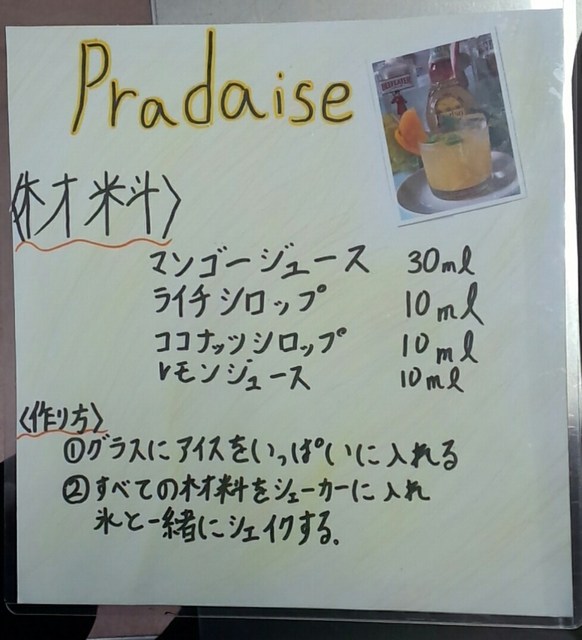 Pradaise
〈材料〉
マンゴージュース 30ml
ライチシロップ 10ml
ココナッツシロップ 10ml
レモンジュース 10ml
〈作り方〉
①グラスにアイスをいっぱいに入れる
②すべての材料をシェーカーに入れ
氷と一緒にシェイクする。
BEEFEATER